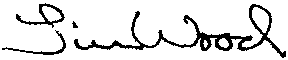 Jim Wood